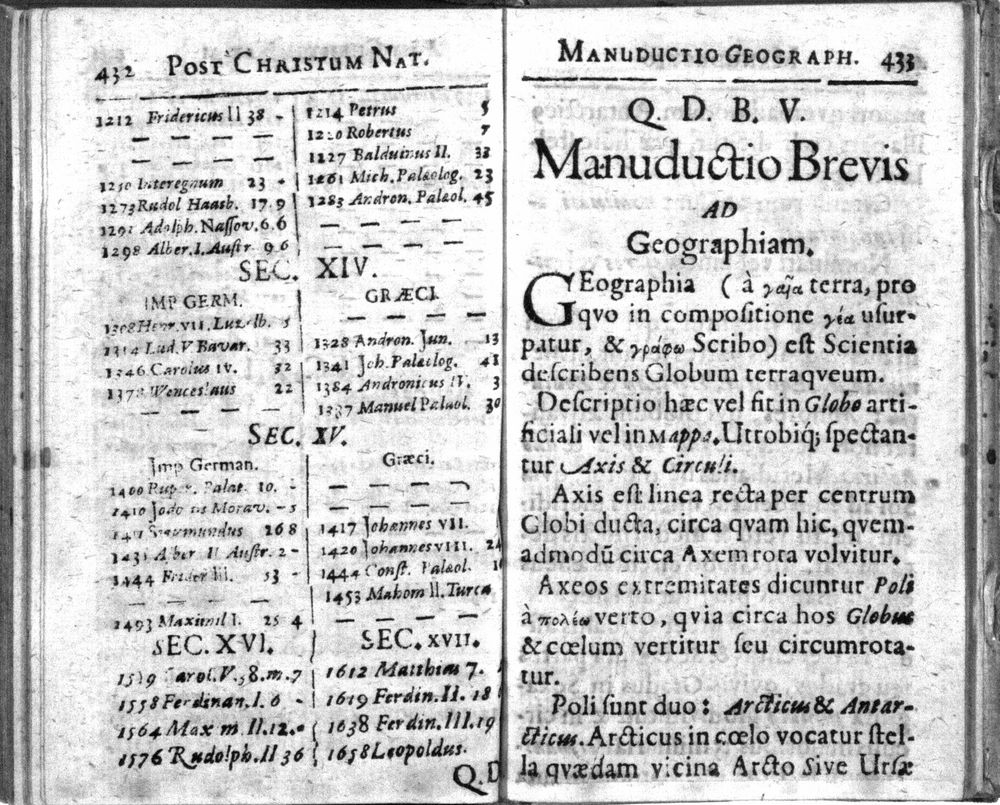 432 POST CHRISTUM NAT.
1212 Fridericus II 38 -
1250 Interegnum 23 -
1273 Rudol Haasb. 17.9
1291 Adolph. Nassov. 6.6
1298 Alber. I. Austr 9 6
1214 Petrus 5
1220 Robertus 7
1227 Balduinus II. 33
1261 Mich. Palæolog. 23
1283 Andron. Palæol. 45
SEC. XIV.
IMP GERM.
1308 Henr. VII. Luzelb. 5
1314 Lud. V Bavar. 33
1346 Carolus IV. 32
1378 Wenceslaus 22
GRÆCI.
1328 Andron. Jun. 13
1341 Joh. Palæolog. 41
1384 Andronicus IV. 3
1337 Manuel Palæol. 30
SEC. XV.
Imp German.
1400 Ruper. Palat. 10. -
1410 Jodocus Morav. - 5
Sigismundus 26 8
1431 Alber. II Austr. 2 -
1444 Frider III. 53 -
1493 Maximil I. 25 4
Græci.
1417 Johannes VII.
1420 Johannes VIII. 24
1444 Const. Palæol.
1453 Mahom II. Turca
SEC. XVI.
1519 Carol. V. 38. m. 7
1558 Ferdinan. I. 6 -
1564 Max m. II. 12. -
1576 Rudolph. II 36
SEC. XVII.
1612 Matthias 7.
1619 Ferdin. II. 18
1638 Ferdin. III. 19
1658 Leopoldus.
Q. D
MANUDUCTIO GEOGRAPH. 433
Q. D. B. V.
Manuductio Brevis
AD
Geographiam.
GEographia ( à γαῖα terra, pro
qvo in compositione γέα usur-
patur, & γράφω Scribo) est Scientia
describens Globum terraqveum.
Descriptio hæc vel fit in Globo arti-
ficiali vel in Mappa. Utrobiq; spectan-
tur Axis & Circuli.
Axis est linea recta per centrum
Globi ducta, circa qvam hic, qvem-
admodū circa Axem rota volvitur.
Axeos extremitates dicuntur Poli
à πολέω verto, qvia circa hos Globus
& cœlum vertitur seu circumrota-
tur.
Poli sunt duo: Arcticus & Antar-
cticus. Arcticus in cœlo vocatur stel-
la qvædam vicina Arcto Sive Ursæ